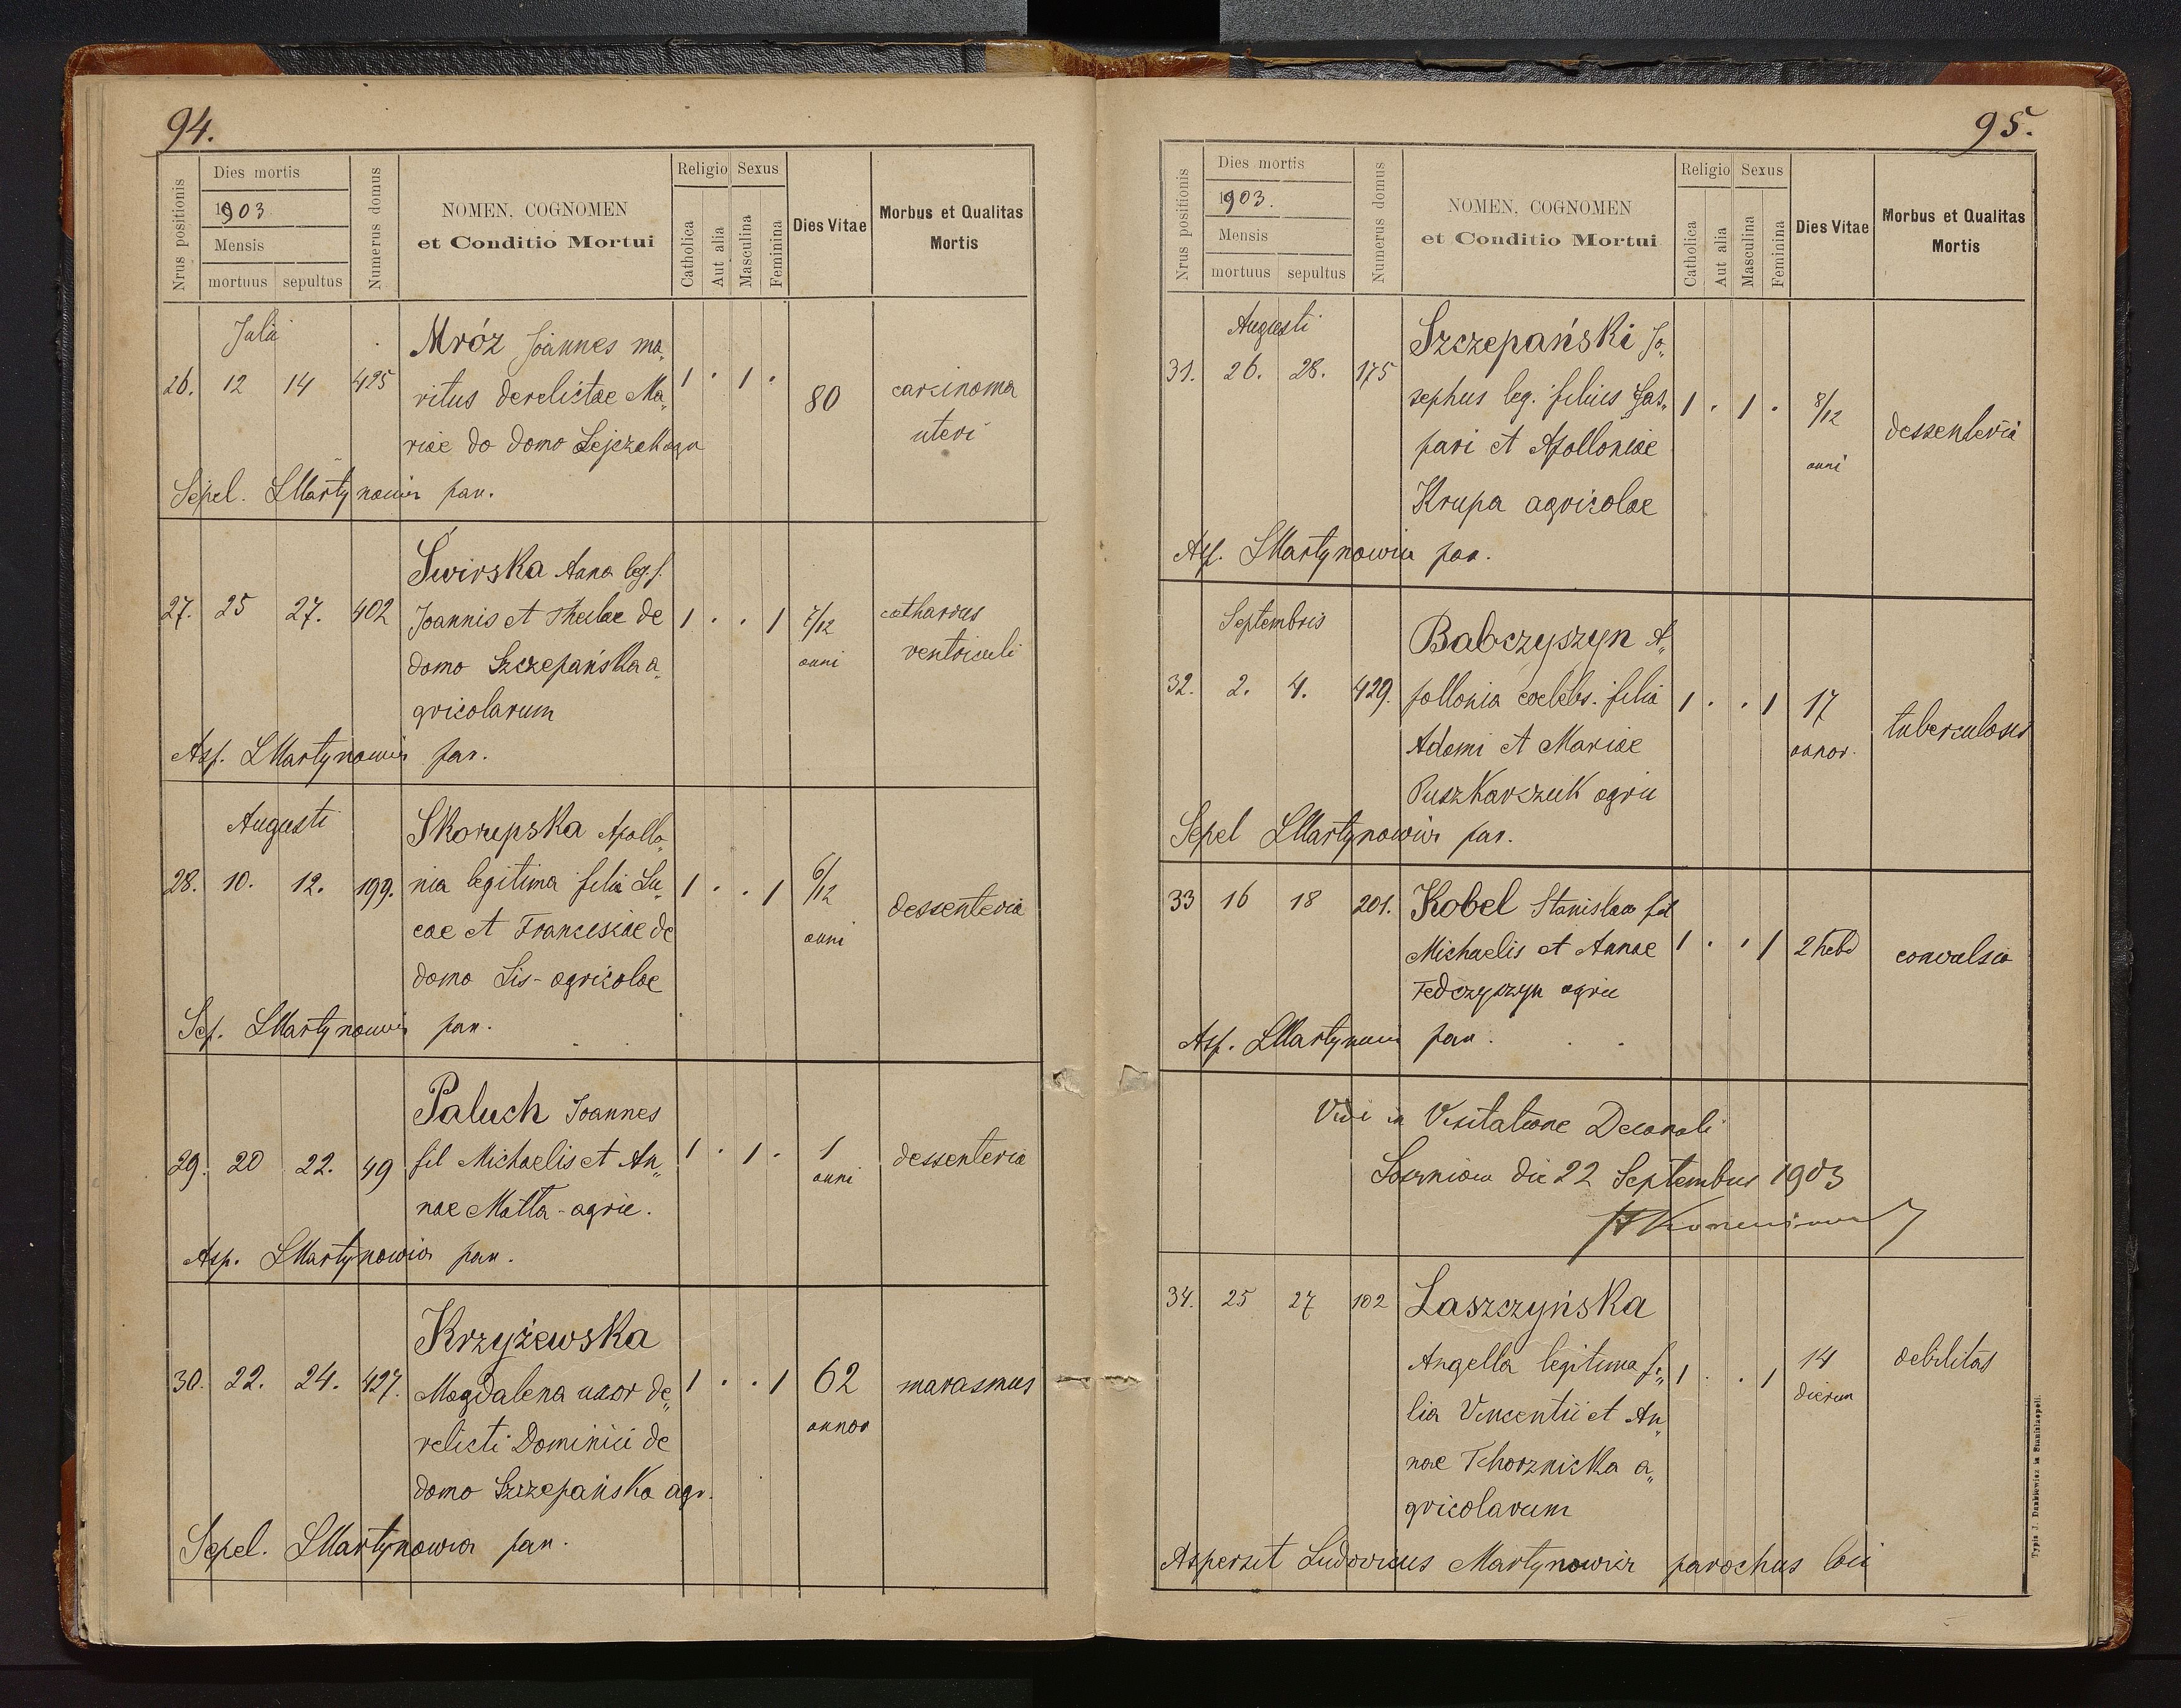 94.
Nrus positionis
Dies mortis
1903
Mensis
mortuus sepultus
Numerus domus
NOMEN, COGNOMEN
et Conditio Mortui
Religio Sexus
Catholica
Aut alia
Masculina
Feminina
Dies Vitae
Morbus et Qualitas
Mortis
Julii
26. 12 14 425
Mróz Joannes ma„
ritus derelictae Ma„
riae do domo Lejczak agr
1 . 1 .
80
carcinoma
uteri
Sepel. LMartynowicz par.
27. 25 27. 402
Świrska Anna leg. f.
Joannis et Theclae de
domo Szczepańska a„
gricolarum
1 . . 1
7/12
anni
catharus
ventriculi
Asp. LMartynowicz par.
Augusti
28. 10. 12. 199.
Skorupska Apollo„
nia legitima filia Lu„
cae et Franciscae de
domo Lis - agricolae
1 . . 1
6/12
anni
dessenteria
Sep. LMartynowicz par.
29. 20 22. 49
Paluch Joannes
fil Michaelis et An„
nae Matta - agric.
1 . 1 .
1
anni
dessenteria
Asp. LMartynowicz par.
30. 22. 24. 427.
Krzyżewska
Magdalena uxor de„
relicti Dominici de
domo Szczepańska agr.
1 . . 1
62
annor
marasmus
Sepel. LMartynowicz par.
95.
Nrus positionis
Dies mortis
1903.
Mensis
mortuus sepultus
Numerus domus
NOMEN, COGNOMEN
et Conditio Mortui
Religio Sexus
Catholica
Aut alia
Masculina
Feminina
Dies Vitae
Morbus et Qualitas
Mortis
Augusti
31. 26. 28. 175
Szczepański Jo„
sephus leg. filius Gas„
pari et Apolloniae
Krupa agricolae
1 . 1 .
8/12
anni
dessenteria
Asp. LMartynowicz par.
Septembris
32. 2. 4. 429.
Babczyszyn A„
pollonia coelebs. filia
Adami et Mariae
Puszkarczuk agric
1 . . 1
17
annor.
tuberculosis
Sepel LMartynowicz par.
33 16 18 201.
Kobel Stanislaa fil
Michaelis et Annae
Fedczyszyn agric
1 . . 1
2 hebd
convulsio
Asp. LMartynowicz par.
Vidi in Visitatione Decanali
die 22 Septembris 1903
34. 25 27 102
Laszczyńska
Angella legitima fi„
lia Vincentii et An„
nae Tchorznicka a„
gricolarum
1 . . 1
14
dierum
debilitas
Aspersit Ludovicus Martynowicz parochus loci
Typis J. Dankiewicz in Stanislaopoli.